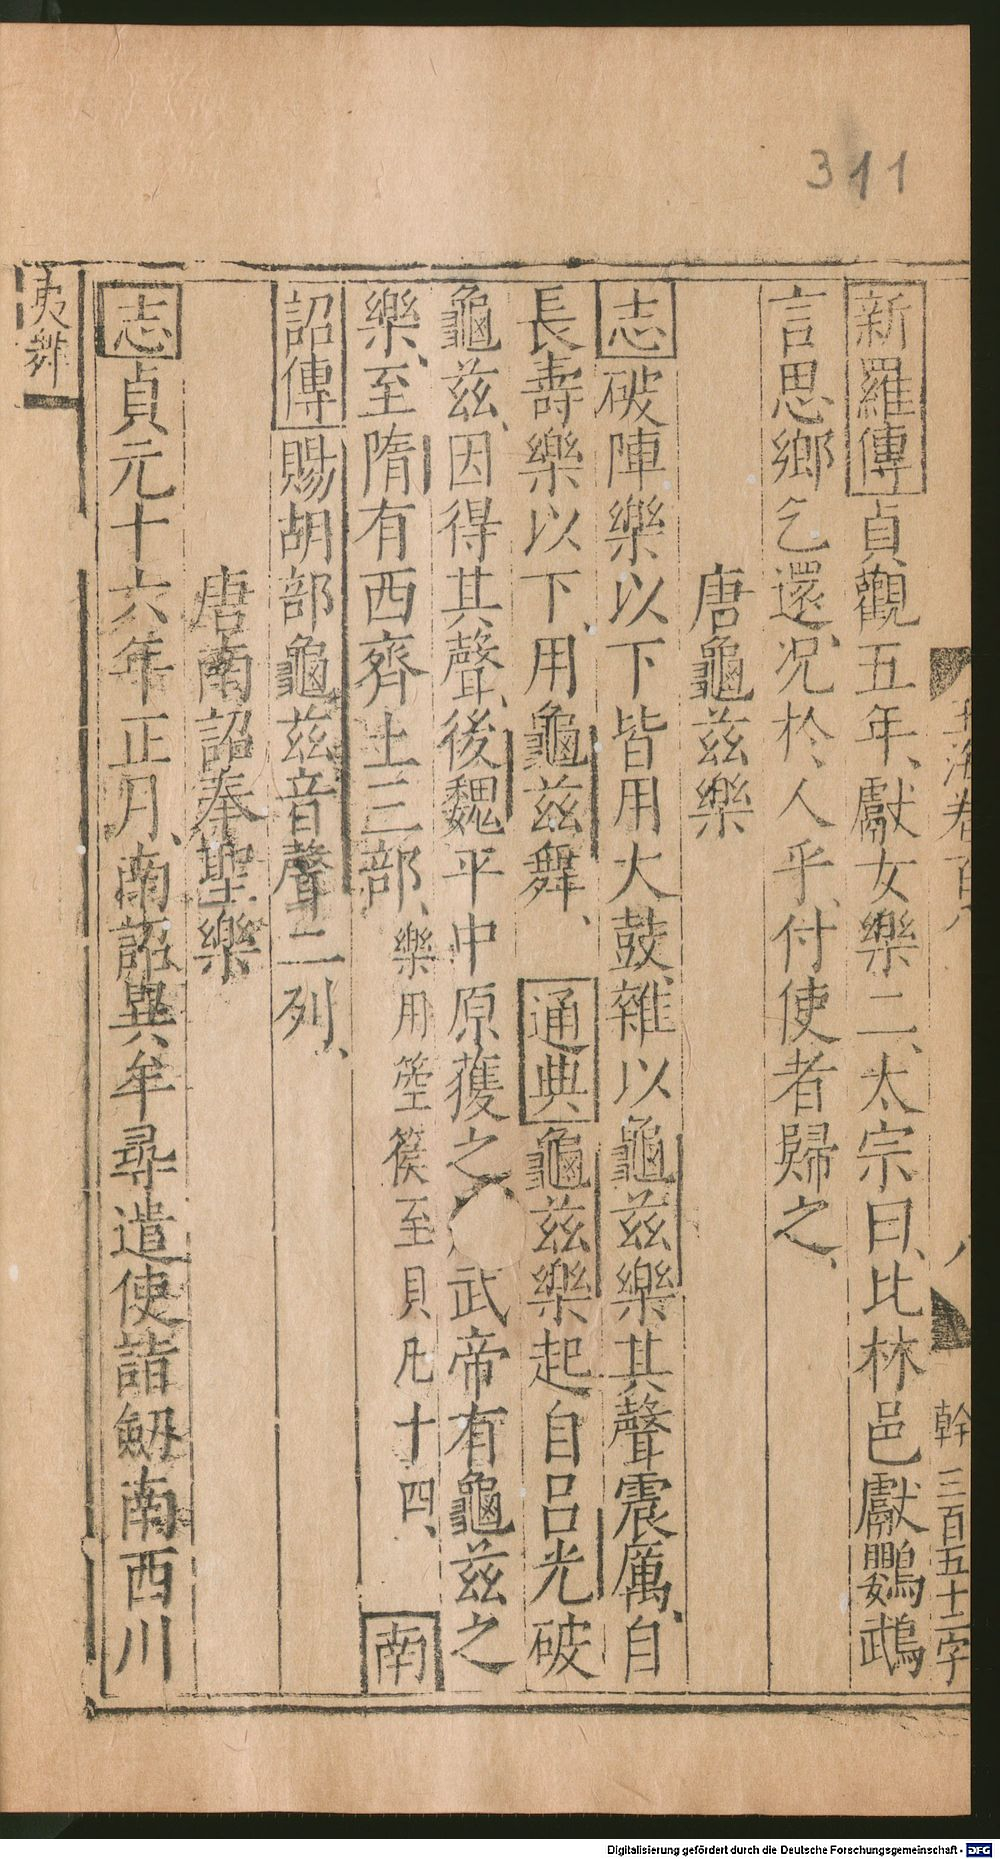 311
玉海卷百八
八
幹
三百五十二字
新羅傳貞觀五年、獻女樂二、太宗曰、比林邑獻鸚鵡
言思鄉乞還、况於人乎、付使者歸之、
唐龜茲樂
志破陣樂以下皆用大鼓、雜以龜茲樂其聲震厲、自
長壽樂以下、用龜茲舞、通典龜茲樂起自呂光破
龜茲、因得其聲、後魏平中原獲之、武帝有龜茲之
樂、至隋有西齊土三部、樂用箜篌至貝凡十四、南
詔傳賜胡部龜茲音聲二列、
唐南詔奉聖樂
志貞元十六年正月、南詔異牟尋遣使詣劒南西川
夷舞
Digitalisierung gefördert durch die Deutsche Forschungsgemeinschaft - DFG